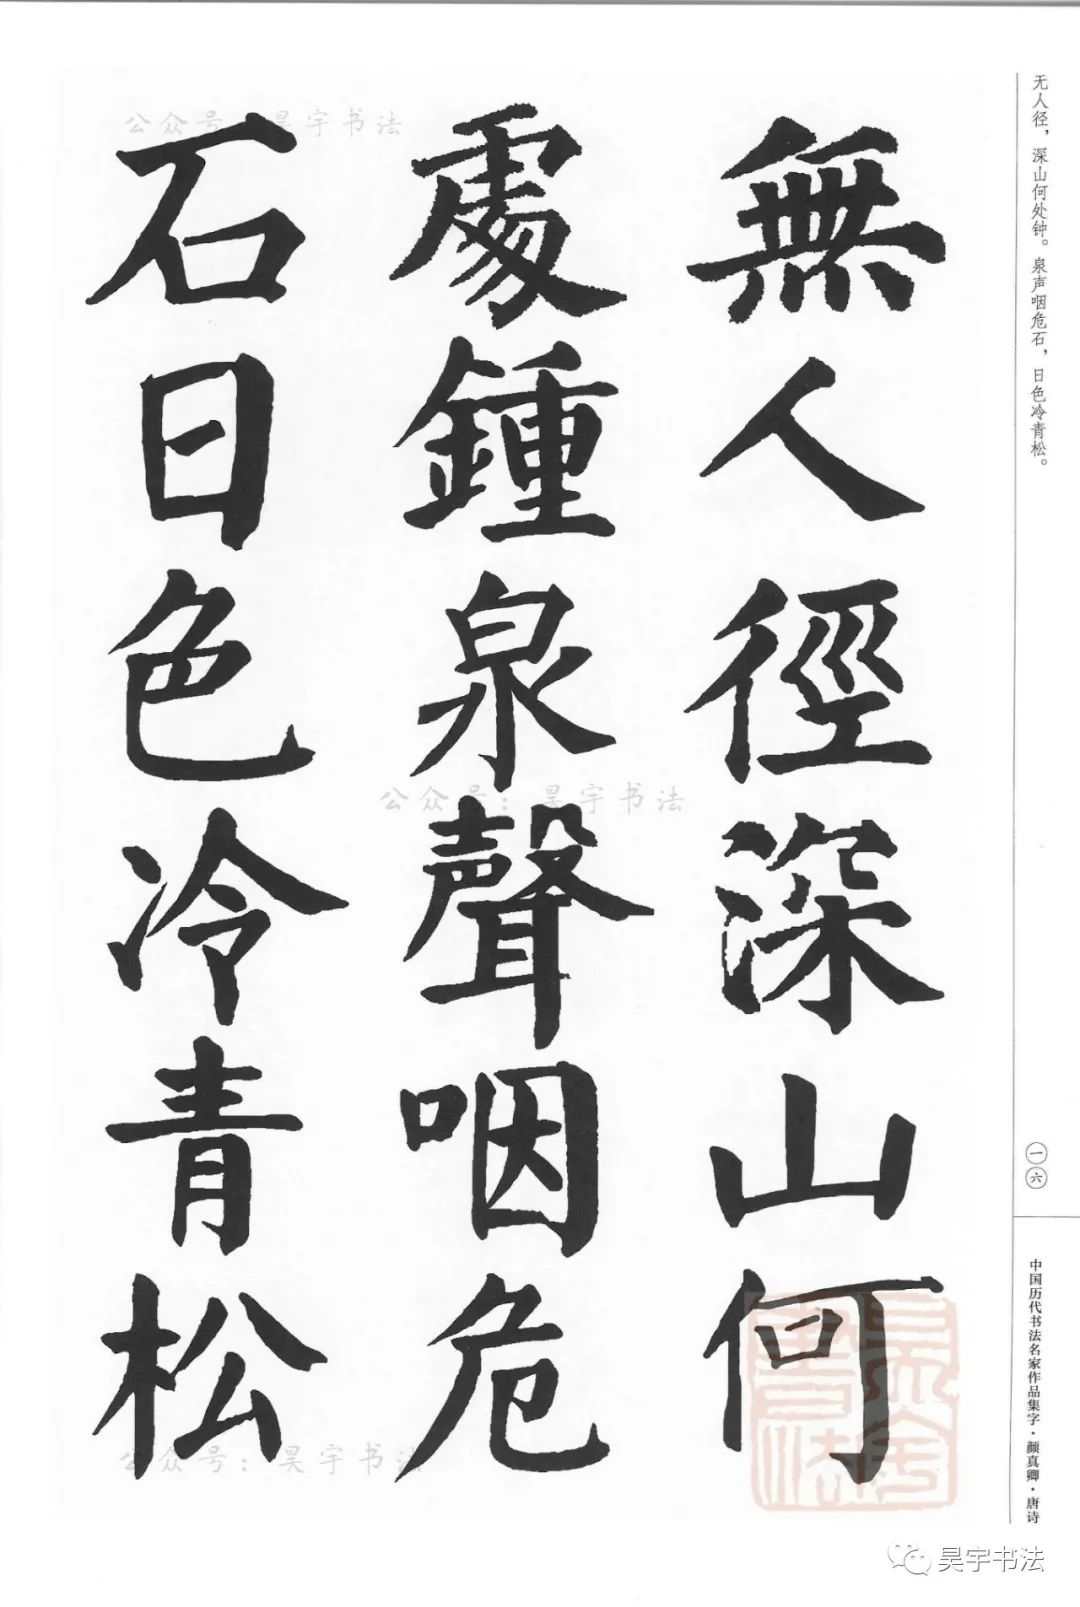 无人径，深山何处钟。泉声咽危石，日色冷青松。
無人徑深山何
處鍾泉聲咽危
石日色冷青松
一六
中国历代书法名家作品集字·颜真卿·唐诗
公众号：昊宇书法
公众号：昊宇书法
公众号：昊宇书法
昊宇书法